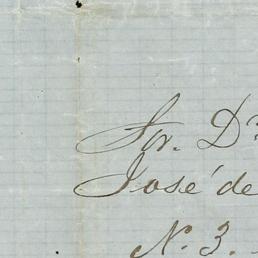 Sor. Dn
José de
N. 3.